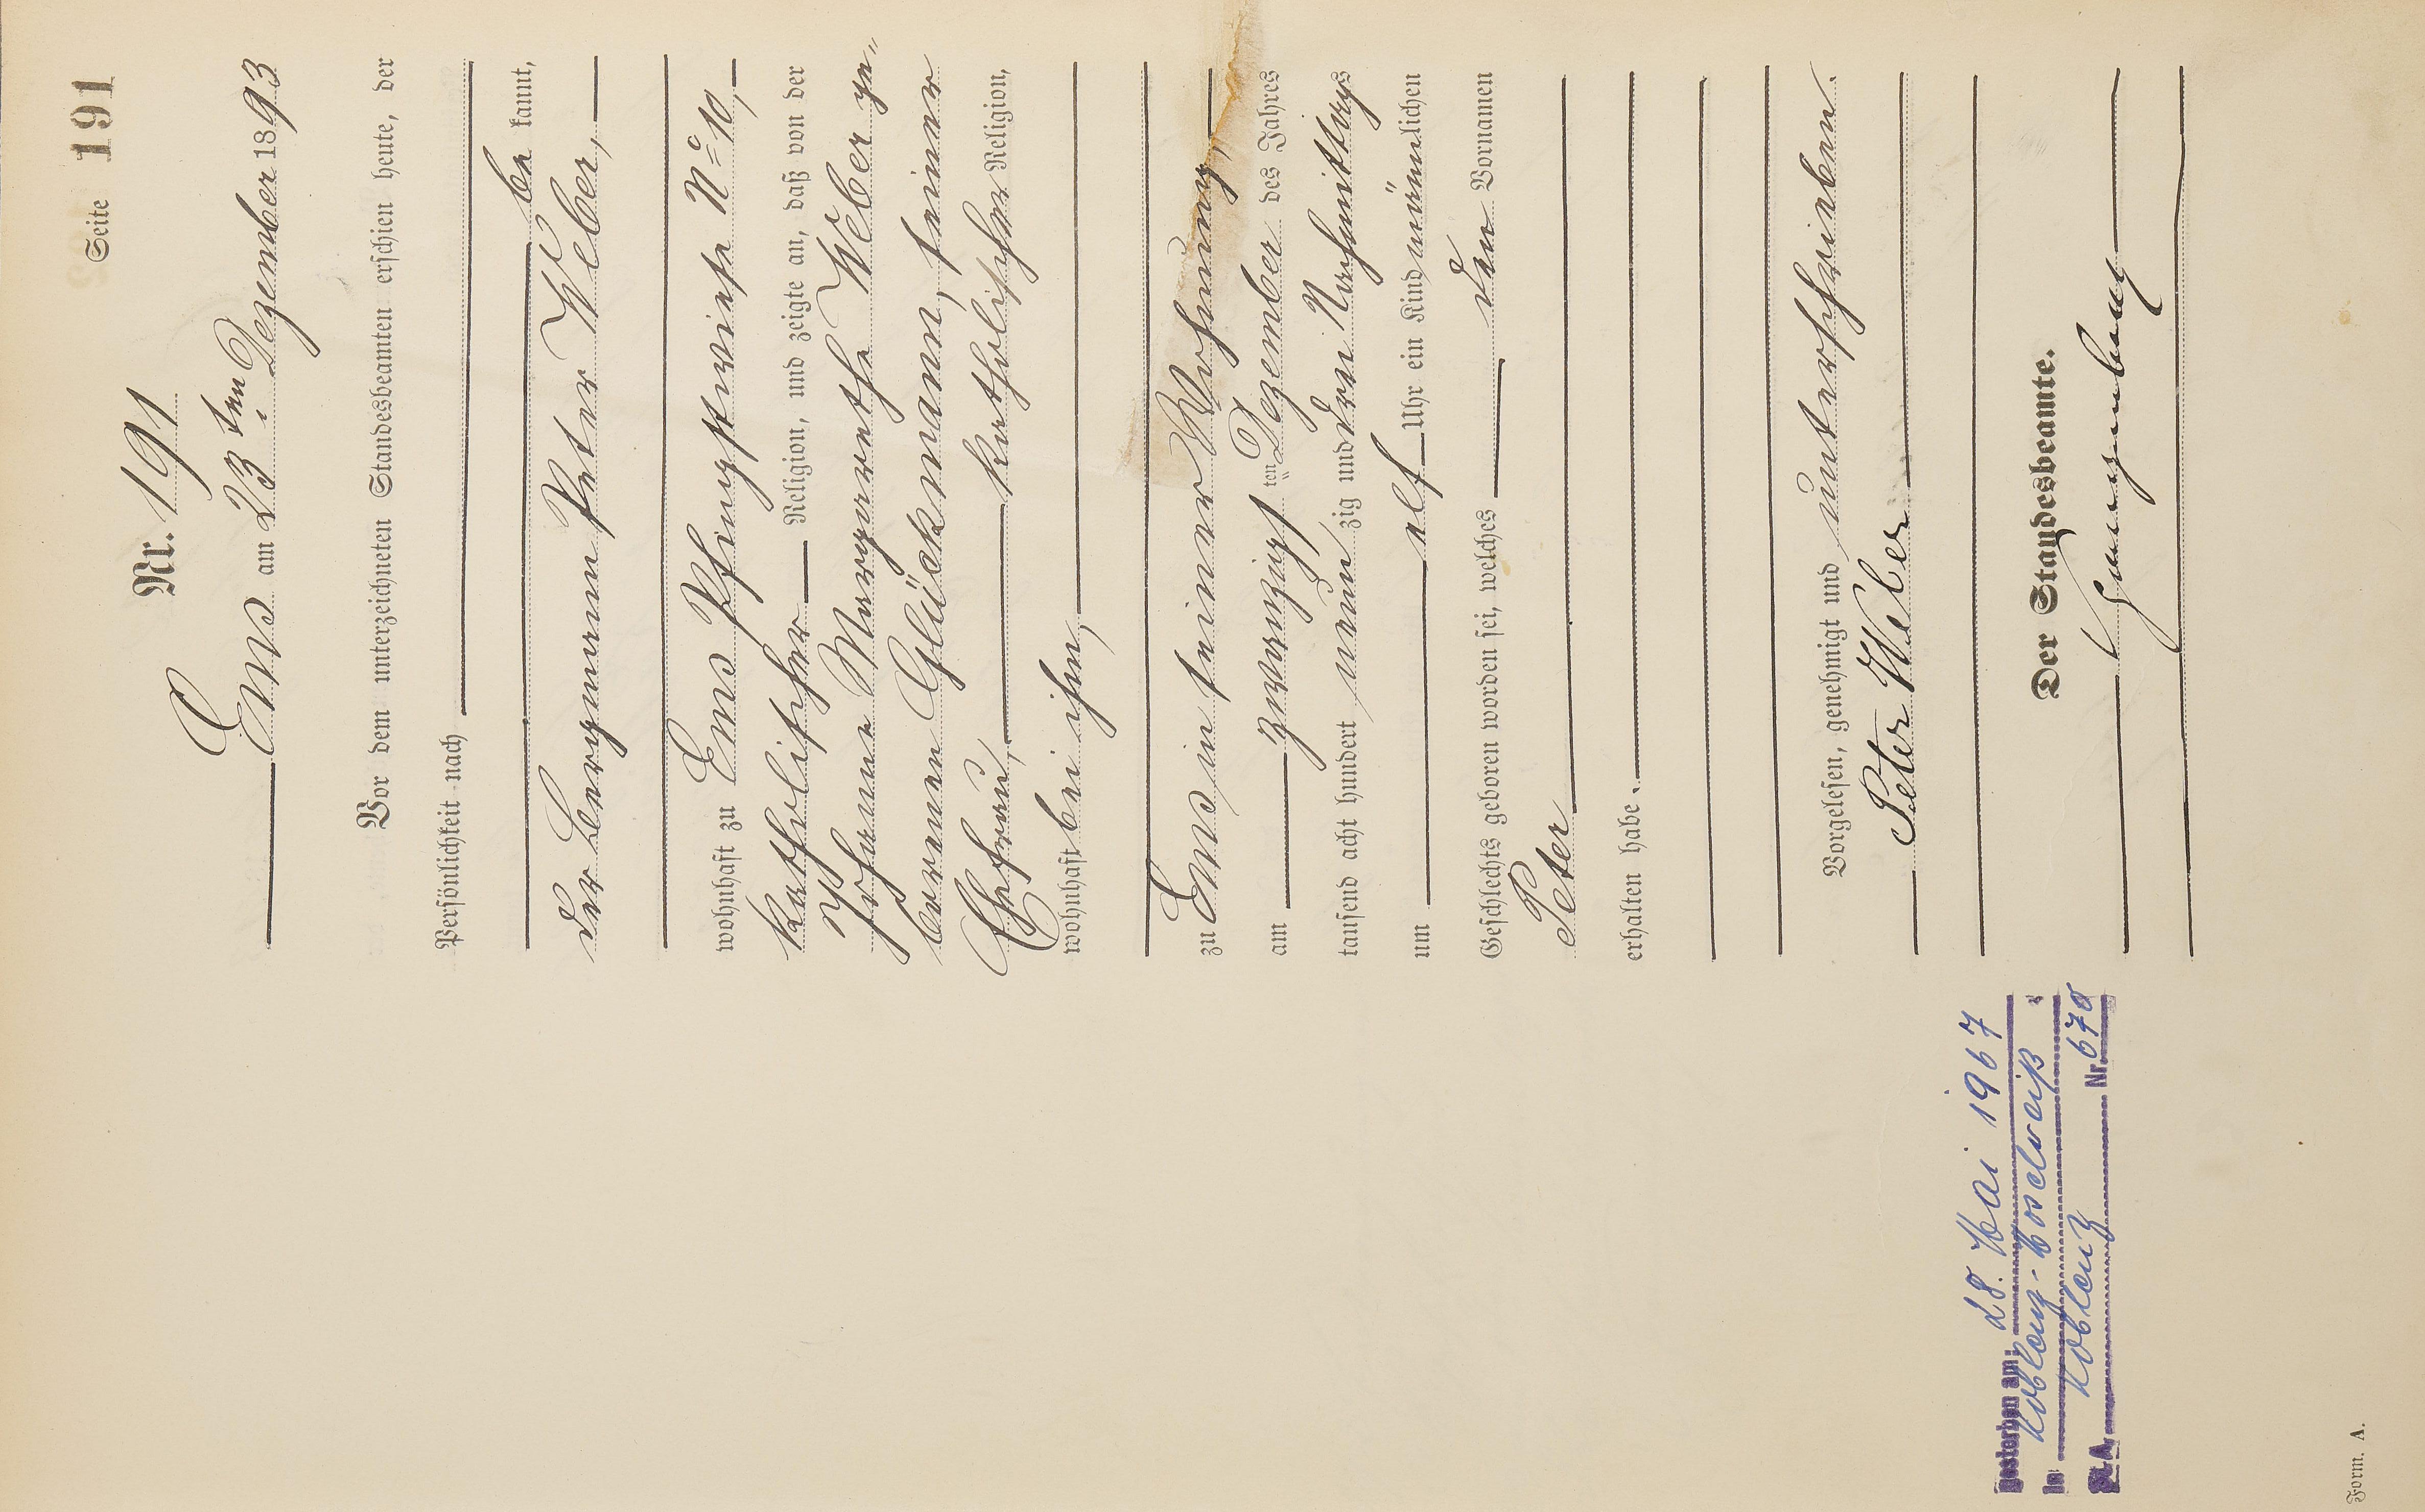 Seite 191
Nr. 191
Ems am 23ten Dezember 1893
Vor dem unterzeichneten Standesbeamten erschien heute, der
Persönlichkeit nach
be kannt,
der Bergmann Peter Weber,
wohnhaft zu Ems Pfingstwiese No 10,
katholischer Religion, und zeigte an, daß von der
Johanna Margaretha Weber ge„
borenen Glückmann, seiner
Ehefrau, katholischer Religion,
wohnhaft bei ihm,
zu Ems in seiner Wohnung,
am zwanzigsten Dezember des Jahres
tausend acht hundert neunzig und drei Nachmittags
um elf Uhr ein Kind männlichen
Geschlechts geboren worden sei, welches den Vornamen
Peter
erhalten habe.
Vorgelesen, genehmigt und unterschrieben.
Peter Weber
Der Standesbeamte.
Gestorben am 28. Mai 1967
in Koblenz-Moselweiß
St.A. Koblenz Nr. 670
Form. A.